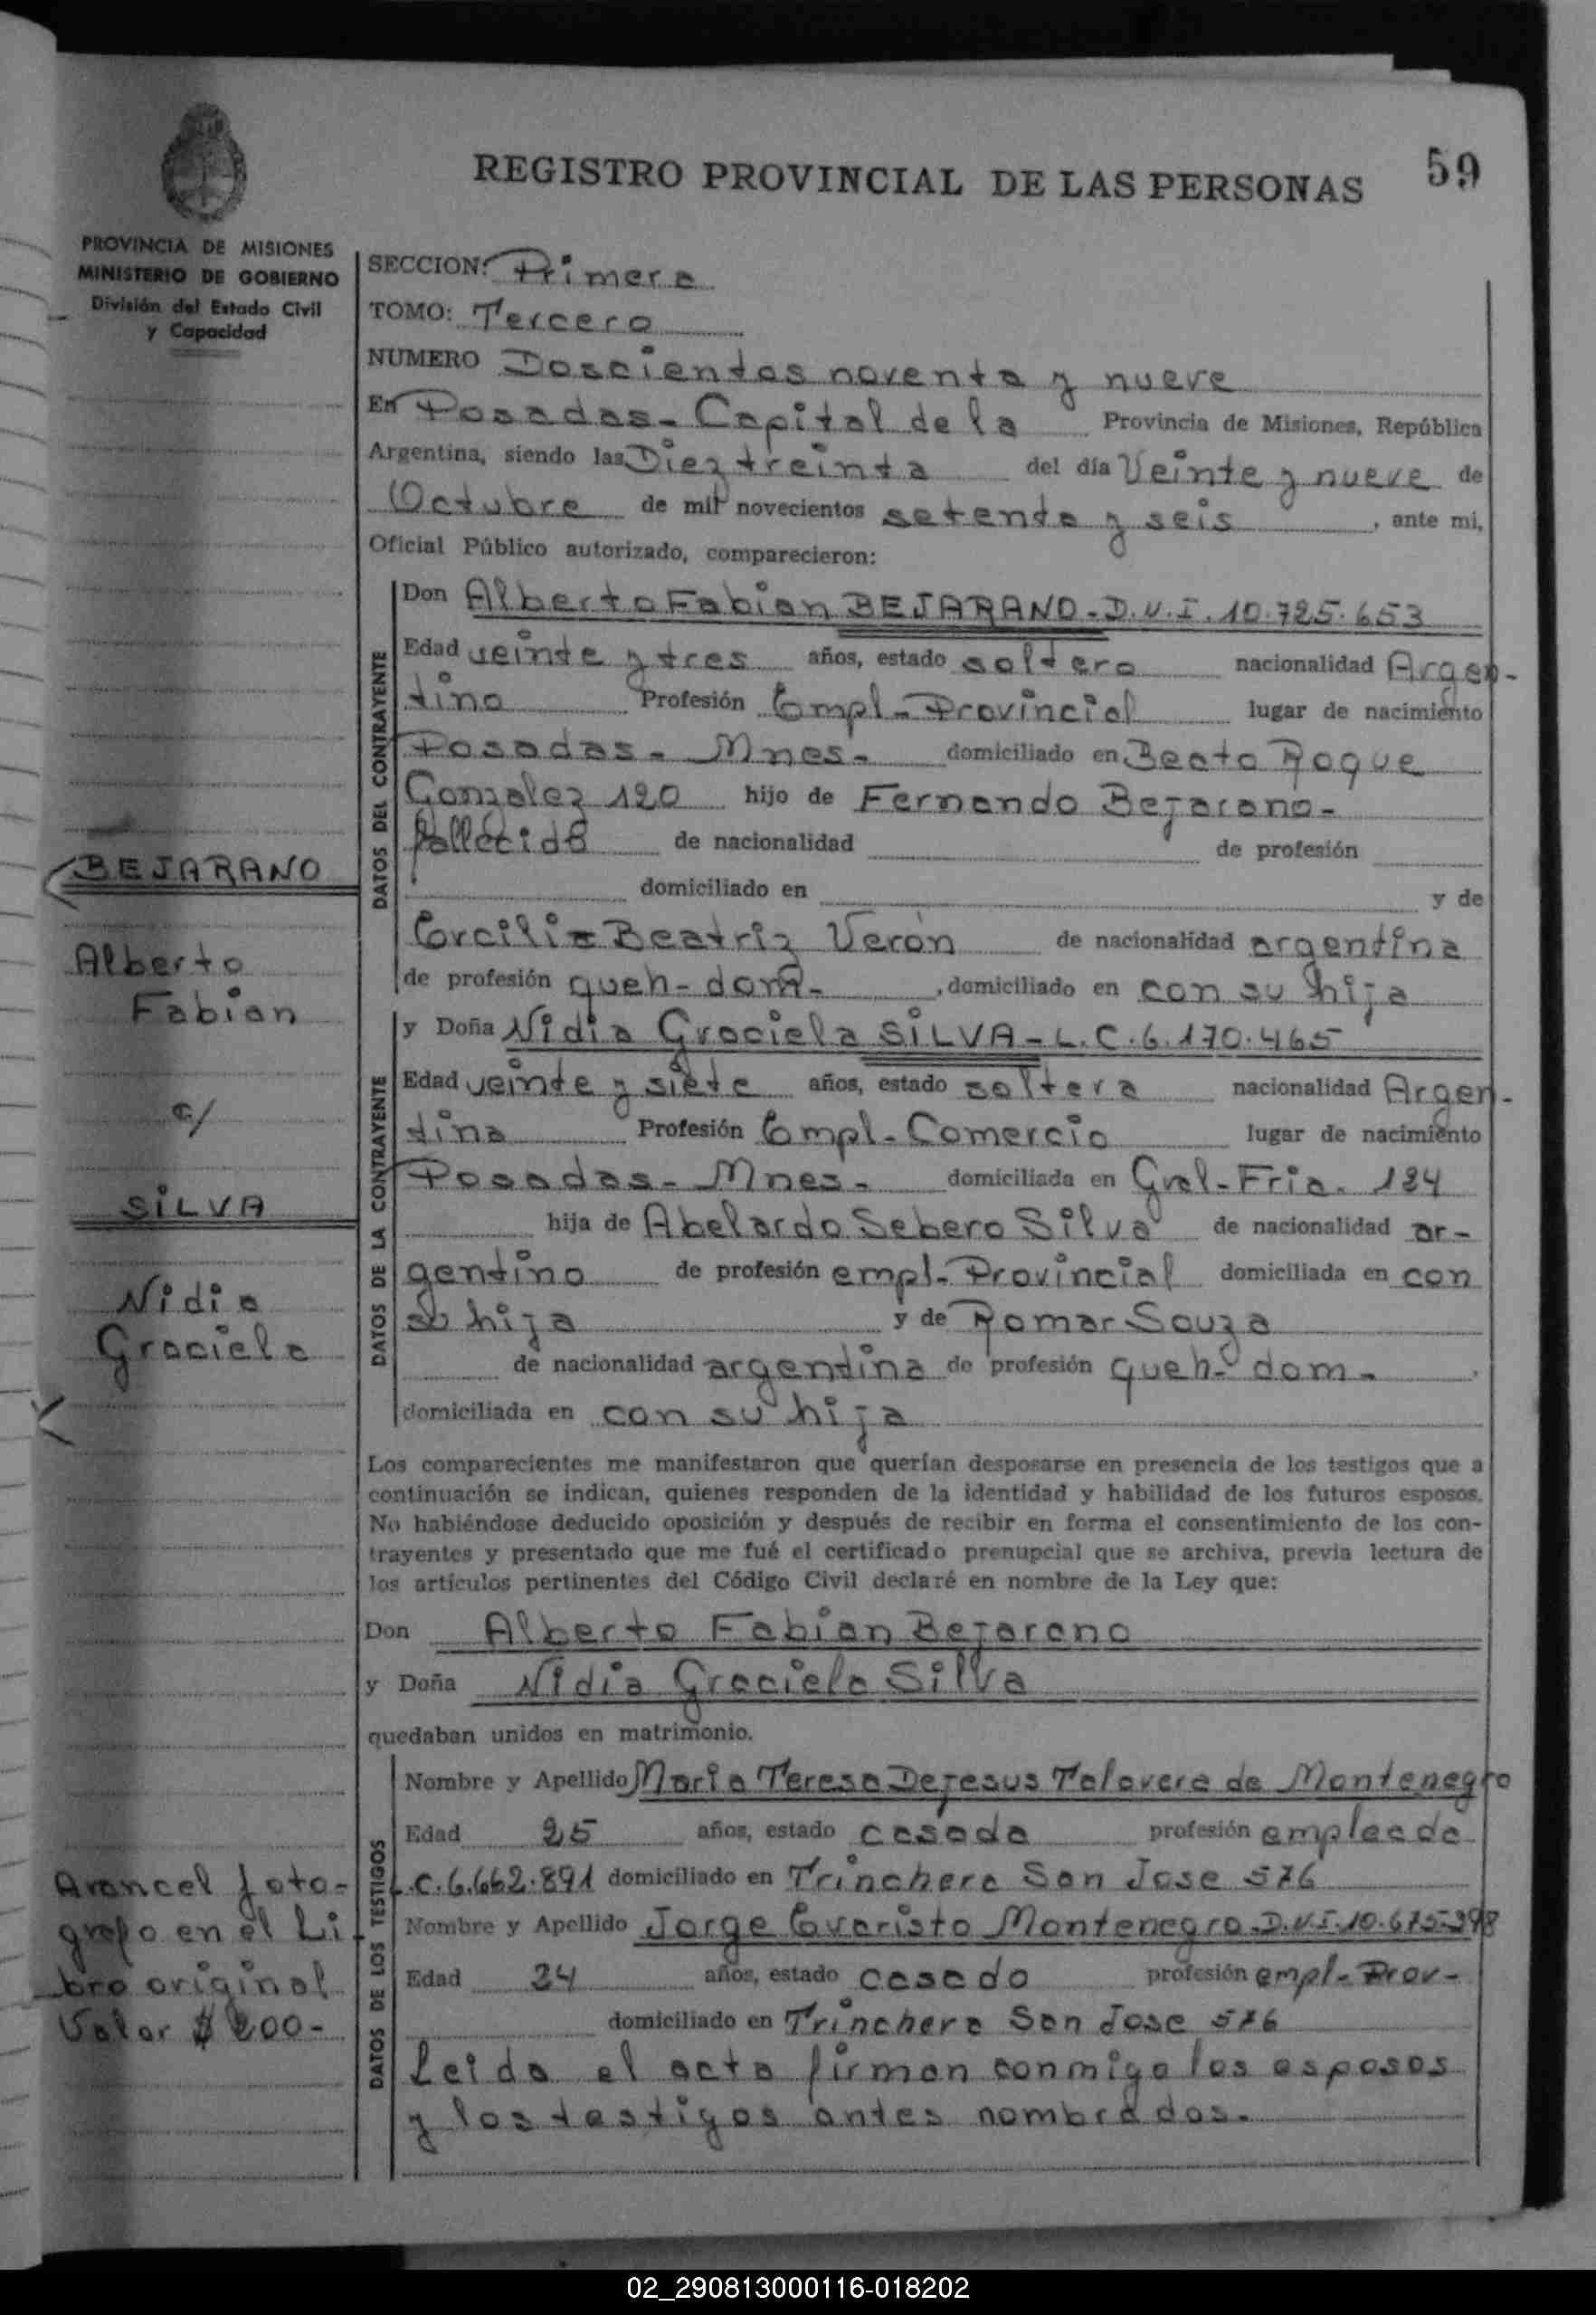 59
REGISTRO PROVINCIAL DE LAS PERSONAS
PROVINCIA DE MISIONES
MINISTERIO DE GOBIERNO
División del Estado Civil
y Capacidad
SECCION: Primera
TOMO: Tercero
NUMERO Doscientos noventa y nueve
En Posadas - Capital de la Provincia de Misiones, República
Argentina, siendo las Diez treinta del día Veinte y nueve de
Octubre de mil novecientos setenta y seis, ante mi,
Oficial Público autorizado, comparecieron:
DATOS DEL CONTRAYENTE
Don Alberto Fabian BEJARANO - D.N.I. 10.725.653
Edad veinte y tres años, estado soltero nacionalidad Argen-
tino Profesión Empl - Provincial lugar de nacimiento
Posadas - Mnes - domiciliado en Beato Roque
Gonzalez 120 hijo de Fernando Bejarano -
fallecido de nacionalidad de profesión
domiciliado en y de
Ercilia Beatriz Verón de nacionalidad argentina
de profesión queh - dom - , domiciliado en con su hija
DATOS DE LA CONTRAYENTE
y Doña Nidia Graciela SILVA - L.C. 6.170.465
Edad veinte y siete años, estado soltera nacionalidad Argen-
tina Profesión Empl - Comercio lugar de nacimiento
Posadas - Mnes - domiciliada en Gral - Fria.
hija de Abelardo Sebero Silva de nacionalidad ar-
gentino de profesión empl - Provincial domiciliada en con
su hija y de Romar Souza
de nacionalidad argentina de profesión queh - dom -
domiciliada en con su hija
Los comparecientes me manifestaron que querían desposarse en presencia de los testigos que a
continuación se indican, quienes responden de la identidad y habilidad de los futuros esposos.
No habiéndose deducido oposición y después de recibir en forma el consentimiento de los con-
trayentes y presentado que me fué el certificado prenupcial que se archiva, previa lectura de
los artículos pertinentes del Código Civil declaré en nombre de la Ley que:
Don Alberto Fabian Bejarano
y Doña Nidia Graciela Silva
quedaban unidos en matrimonio.
DATOS DE LOS TESTIGOS
Nombre y Apellido Maria Teresa Dejesus Talavera de Montenegro
Edad 25 años, estado casada profesión empleada
L.C. 6.662.891 domiciliado en Trinchera San Jose 576
Nombre y Apellido Jorge Evaristo Montenegro - D.N.I. 10.675.398
Edad 24 años, estado casado profesión empl - Prov -
domiciliado en Trinchera San Jose 576
Leida el acta firman conmigo los esposos
y los testigos antes nombrados.
BEJARANO
Alberto
Fabian
c/
SILVA
Nidia
Graciela
Arancel foto-
grafo en el Li-
bro original
Valor $ 200 -
02_290813000116-018202